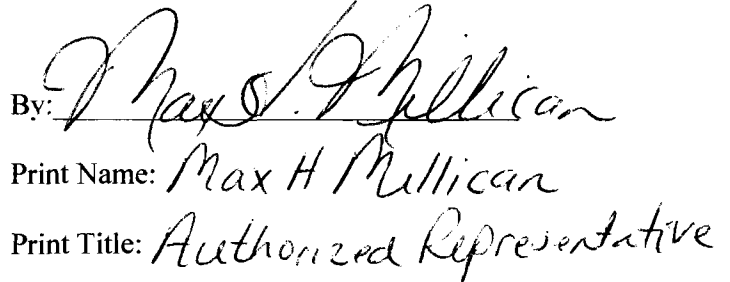 By: Max H. Millican
Print Name: Max H Millican
Print Title: Authorized Representative